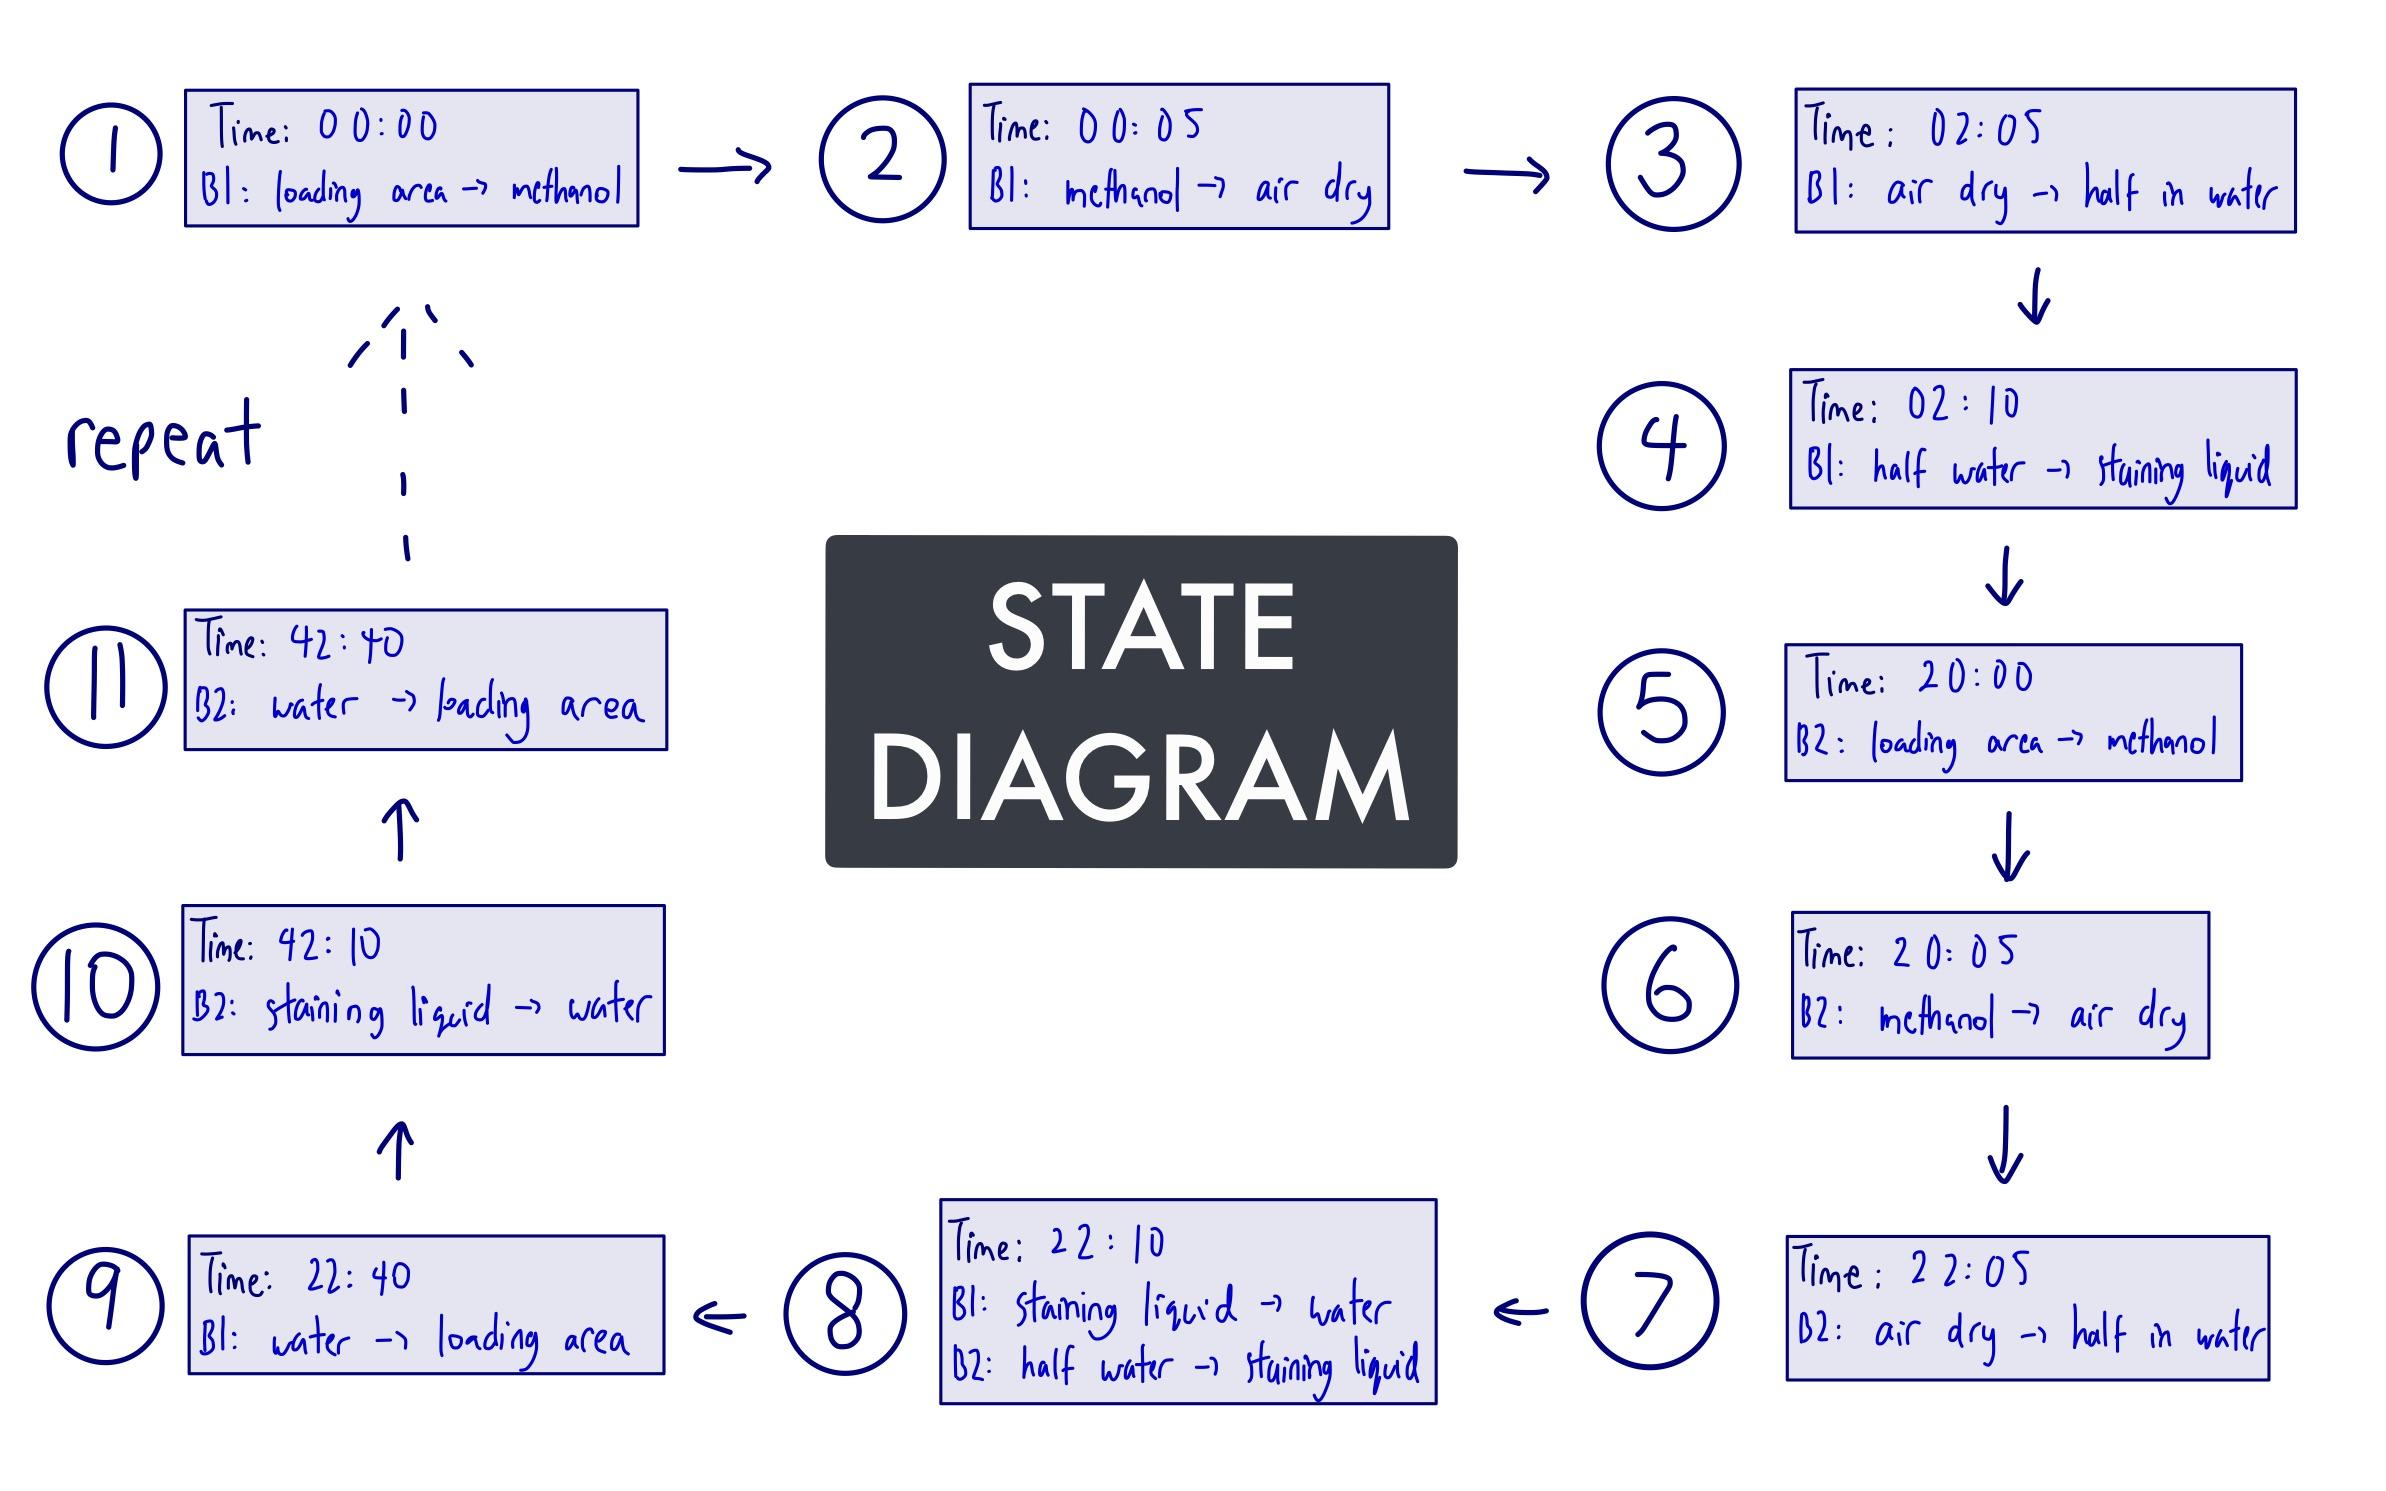 1
Time: 00:00
B1: loading area → methanol
2
Time: 00:05
B1: methanol → air dry
3
Time: 02:05
B1: air dry → half in water
4
Time: 02:10
B1: half water → staining liquid
5
Time: 20:00
B2: loading area → methanol
6
Time: 20:05
B2: methanol → air dry
7
Time: 22:05
B2: air dry → half in water
8
Time: 22:10
B1: staining liquid → water
B2: half water → staining liquid
9
Time: 22:40
B1: water → loading area
10
Time: 42:10
B2: staining liquid → water
11
Time: 42:40
B2: water → loading area
repeat
STATE
DIAGRAM